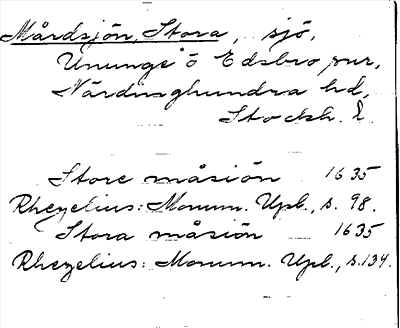 Mårdsjön, Stora, sjö,
Ununge o Edsbro snr,
Närdinghundra hd,
Stockh. l.
Store måsiön 1635
Rhezelius: Monum. Upl., s. 98.
Stora måsiön 1635
Rhezelius: Monum. Upl., s. 134.